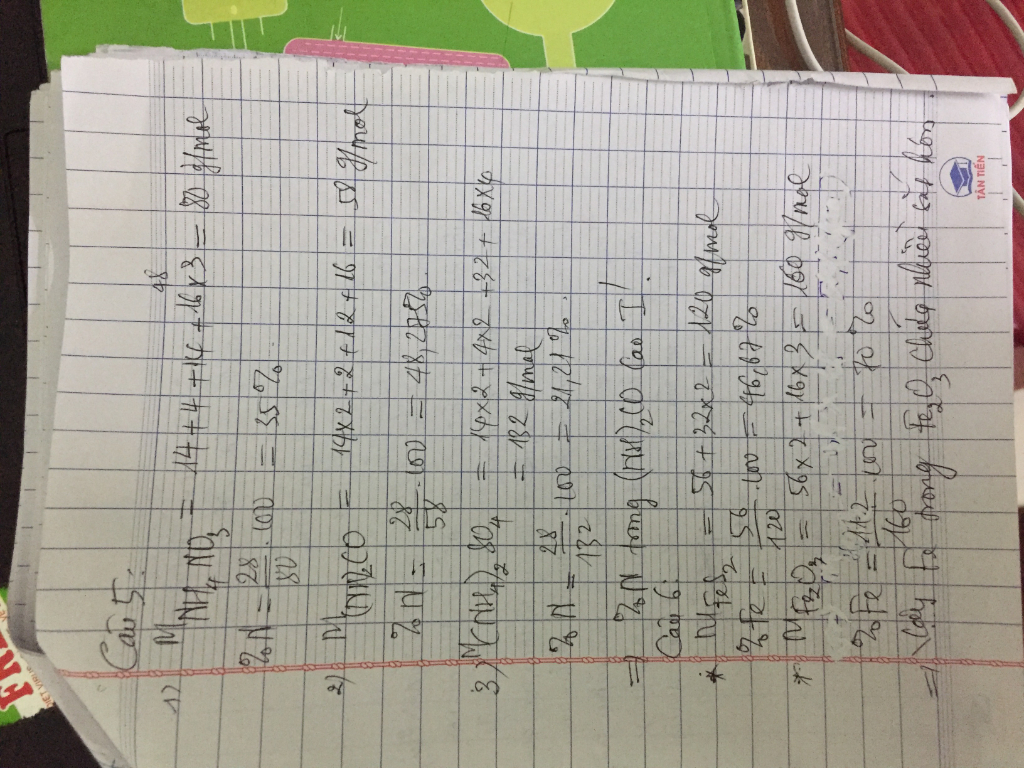 Câu 5:
1) M NH4NO3 = 14 + 4 + 14 + 16 x 3 = 80 g/mol
48
%N = 28/80 . 100 = 35%
2) M (NH)2CO = 14x2 + 2 + 12 + 16 = 58 g/mol
%N = 28/58 . 100 = 48,275%.
3) M (NH4)2SO4 = 14x2 + 4x2 + 32 + 16x4
= 132 g/mol
%N = 28/132 . 100 = 21,21%.
=> %N trong (NH)2CO cao I!
Câu 6:
* M FeS2 = 56 + 32x2 = 120 g/mol
%Fe = 56/120 . 100 = 46,67%
* M Fe2O3 = 56x2 + 16x3 = 160 g/mol
%Fe = 112/160 . 100 = 70%
=> Vậy Fe trong Fe2O3 chứa nhiều sắt hơn.
TÂN TIẾN